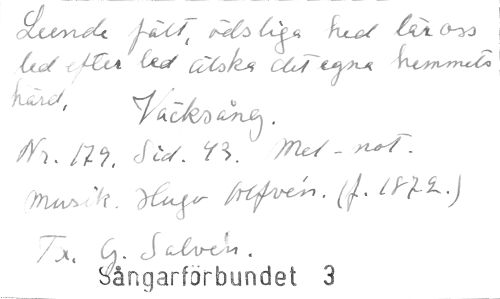 Leende fält, ödsliga hed lär oss
led efter led älska det egna hemmets
härd.
Väcksång.
Nr. 179. Sid. 43. Mel-not.
Musik. Hugo Alfvén. (f. 1872.)
Tx. G. Salvén.
Sångarförbundet 3